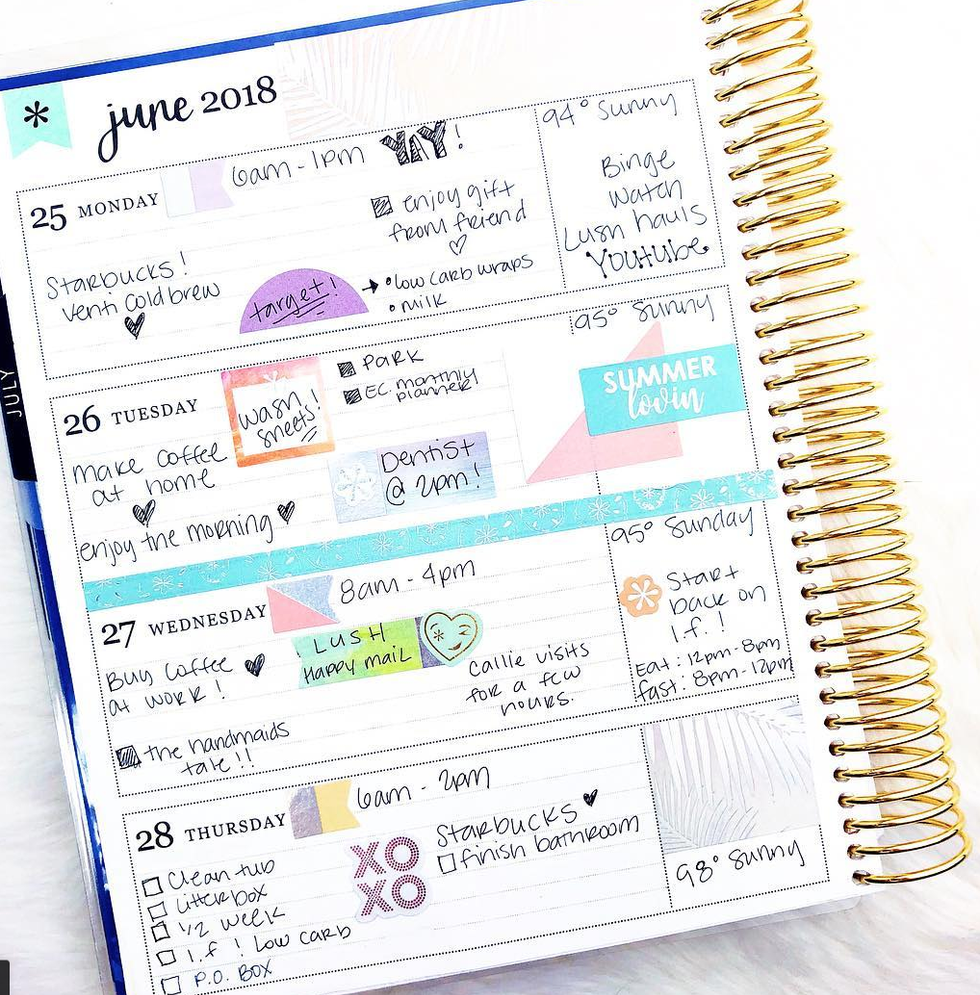 *
june 2018
25 MONDAY
6am - 1pm
YAY!
94° Sunny
enjoy gift
from friend
Binge
watch
Lush hauls
Youtube
Starbucks!
venti cold brew
target!
low carb wraps
milk
JULY
26 TUESDAY
wash
sheets!
PARK
EC. monthly
planner
95° Sunny
SUMMER
lovin
make coffee
at home
Dentist
@ 2pm!
enjoy the morning
27 WEDNESDAY
8am - 4pm
95° Sunday
LUSH
Happy mail
Start
back on
I.f.!
Buy coffee
at work!
Callie visits
for a few
hours.
Eat: 12pm-8pm
fast: 8pm-12pm
the handmaids
tale!!
28 THURSDAY
6am - 2pm
XO
XO
Starbucks
finish bathroom
Clean two
litterbox
1/2 week
I.f! Low carb
P.O. Box
98° Sunny